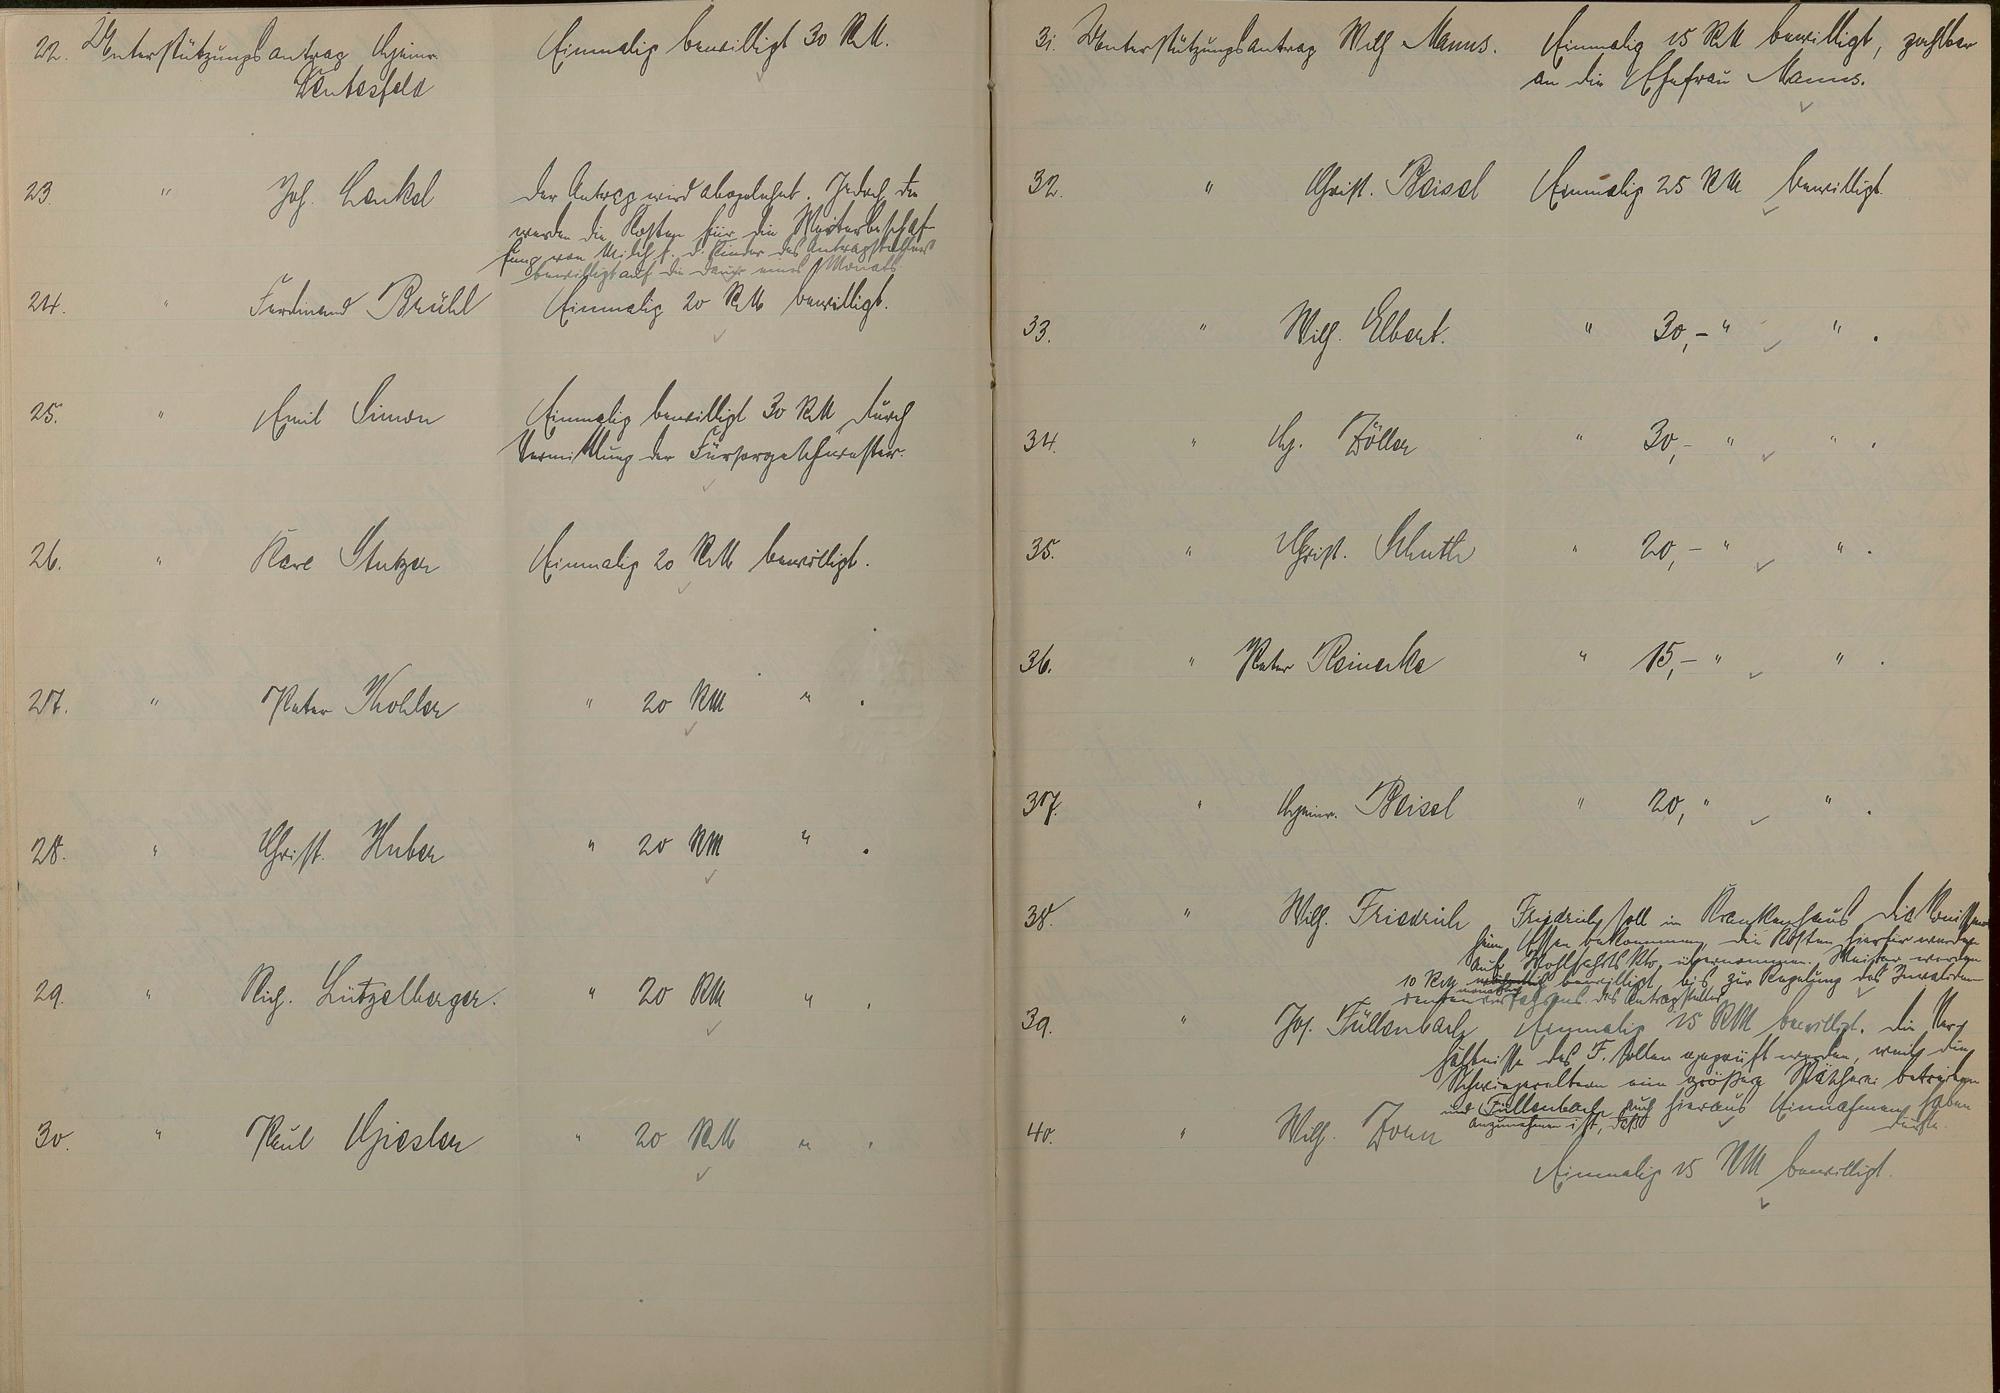 22. Unterstützungsantrag Heinr. Einmalig bewilligt 30 RM.
Deutesfeld
23. " Joh. Henkel Der Antrag wird abgelehnt. Jedoch
werden die Kosten für die Weiterbeschaf-
fung von Milch f. d. Kinder des Antragstellers
bewilligt auf die Dauer eines Monats.
24. " Ferdinand Brühl Einmalig 20 RM bewilligt.
25. " Emil Simon Einmalig bewilligt 30 RM durch
Vermittlung der Fürsorgeschwester.
26. " Karl Stutzer Einmalig 20 RM bewilligt.
27. " Peter Kohler " 20 RM " .
28. " Christ. Huber " 20 RM " .
29. " Rich. Lützelberger. " 20 RM " .
30. " Paul Giesler " 20 RM " .
31. Unterstützungsantrag Wilh Manns. Einmalig 15 RM bewilligt, zahlbar
an die Ehefrau Manns.
32. " Christ. Beisel Einmalig 25 RM bewilligt.
33. " Wilh. Elbert. " 30,- " " .
34. " Hch. Zöller " 30,- " " .
35. " Christ. Schuth " 20,- " " .
36. " Peter Reinerke " 15,- " " .
37. " Heinr. Beisel " 20, " " .
38. " Wilh. Friedrich Friedrich soll im Krankenhaus Diakonissen-
heim Essen bekommen, die Kosten hierfür werden
auf Wohlfahrts Kto. übernommen. Weiter werden
10 RM monatlich bewilligt bis zur Regelung des Invaliden-
rentenverfahrens des Antragstellers
39. " Jos. Füllenbach Einmalig 15 RM bewilligt. Die Ver-
hältnisse des F. sollen geprüft werden, weil die
Schwiegereltern eine größere Wäscherei betreiben
und anzunehmen ist, daß Füllenbach auch hieraus Einnahmen haben
dürfte.
40. " Wilh. Zorn
Einmalig 15 RM bewilligt.